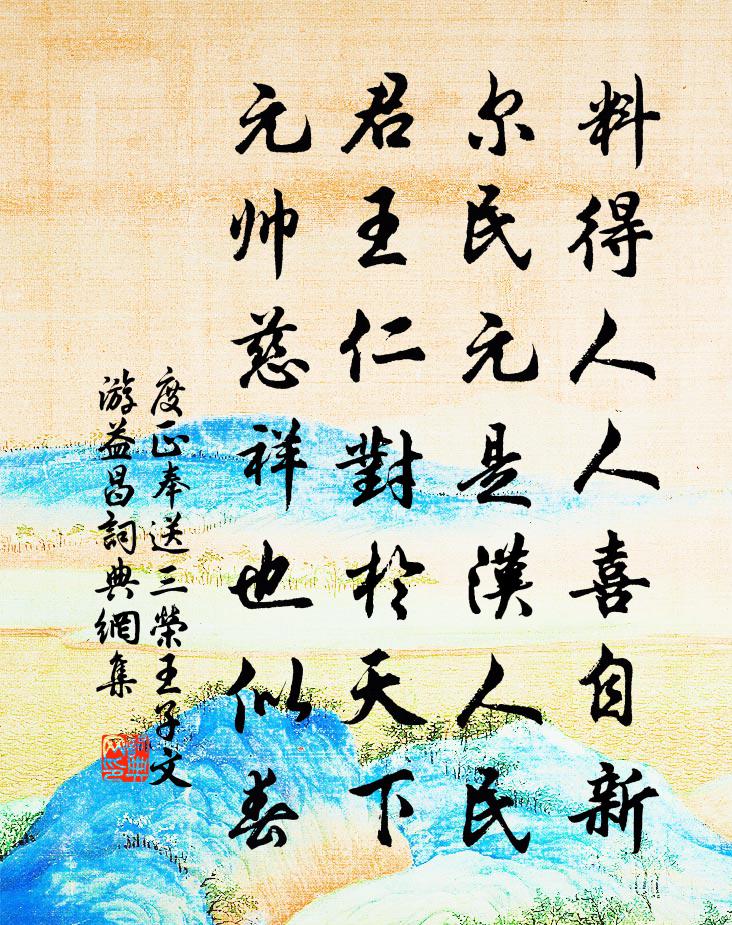 料得人人喜自新
尔民元是漢人民
君王仁對於天下
元帅慈祥也似春
度正奉送三榮王子文
游益昌詞典網集